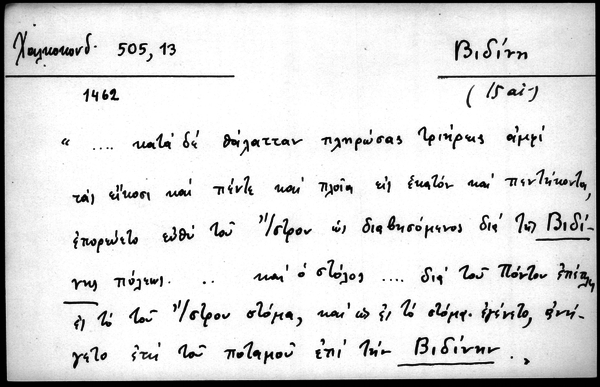 Χαλκοκονδ. 505, 13
Βιδίνη
1462
(15 αἰ.)
“ .... κατὰ δὲ θάλατταν πληρώσας τριήρεις ἀμφὶ
τὰς εἴκοσι καὶ πέντε καὶ πλοῖα εἰς ἑκατόν καὶ πεντήκοντα,
ἐπορεύετο εὐθὺ τοῦ Ἴστρου ὡς διαβησόμενος διὰ τῆς Βιδί-
νης πόλεως. .. καὶ ὁ στόλος .... διὰ τοῦ Πόντου ἐπέπλει
ἐς τὸ τοῦ Ἴστρου στόμα, καὶ ὡς ἐς τὸ στόμα ἐγένετο, ἀνή-
γετο ἐπὶ τοῦ ποταμοῦ ἐπὶ τὴν Βιδίνην . ,,